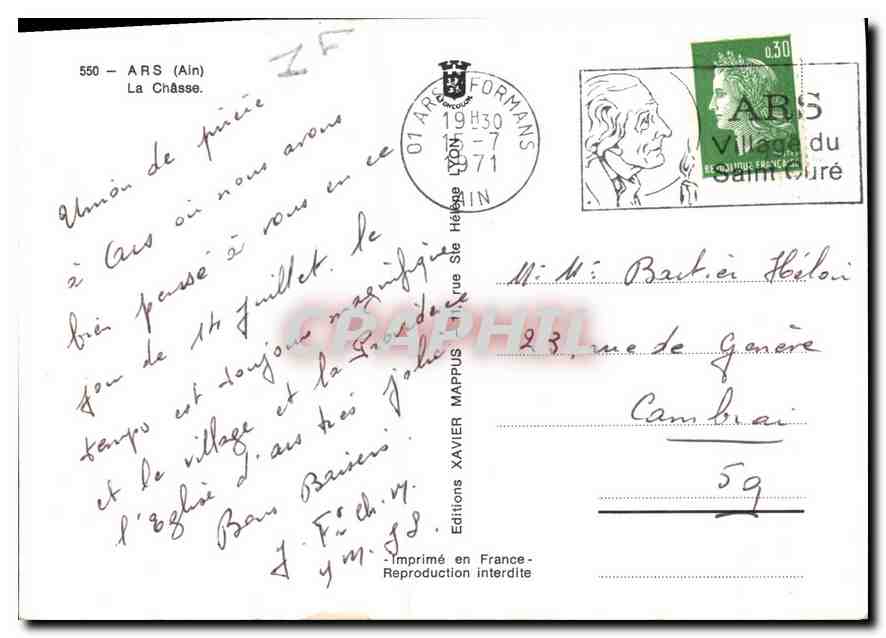 550 — ARS (Ain)
La Châsse.
1F
Union de prière
à Ars où nous avons
bien pensé à vous en ce
jour de 14 Juillet. le
temps est toujours magnifique
et le village et la Providence
l'Eglise d'ars très jolie.
Bons Baisers.
J. F. ch. m.
LYONCOLOR
01 ARS-FORMANS
19H30
15-7
1971
AIN
0,30
REPUBLIQUE FRANCAISE
ARS
Village du
Saint Curé
Editions XAVIER MAPPUS 11, rue Ste Hélène LYON
CPAPHIL
Mr Me Bastien Héloir
23, rue de Genève
Cambrai
59
-Imprimé en France-
Reproduction interdite